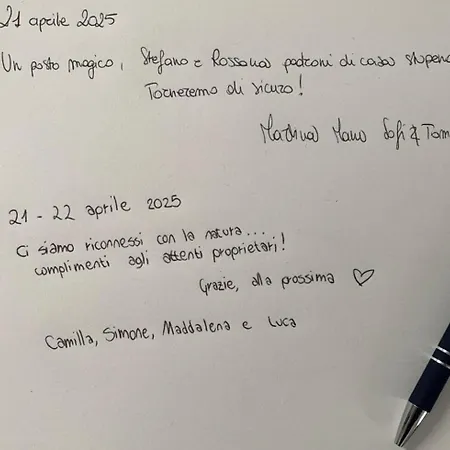 21 aprile 2025
Un posto magico, Stefano e Rossana padroni di casa stupen
Torneremo di sicuro!
Martina Manu Sofi & Tom
21 - 22 aprile 2025
Ci siamo riconnessi con la natura...
complimenti agli attenti proprietari!
Grazie, alla prossima ♡
Camilla, Simone, Maddalena e Luca